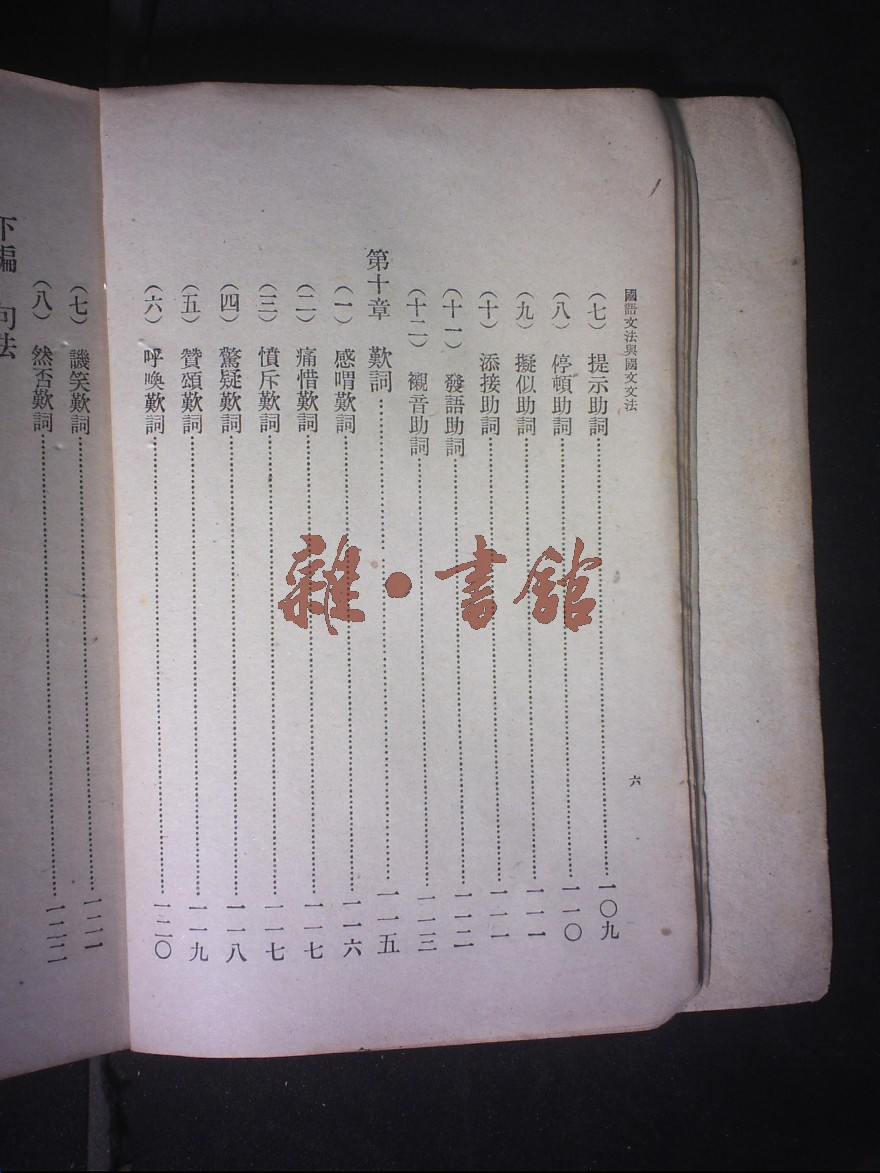 國語文法與國文文法
六
(七) 提示助詞……一〇九
(八) 停頓助詞……一一〇
(九) 擬似助詞……一一一
(十) 添接助詞……一一一
(十一) 發語助詞……一一二
(十二) 襯音助詞……一一三
第十章 歎詞……一一五
(一) 感喟歎詞……一一六
(二) 痛惜歎詞……一一七
(三) 憤斥歎詞……一一七
(四) 驚疑歎詞……一一八
(五) 贊頌歎詞……一一九
(六) 呼喚歎詞……一二〇
(七) 譏笑歎詞……一二一
(八) 然否歎詞……一二二
下編 句法
雜·書館